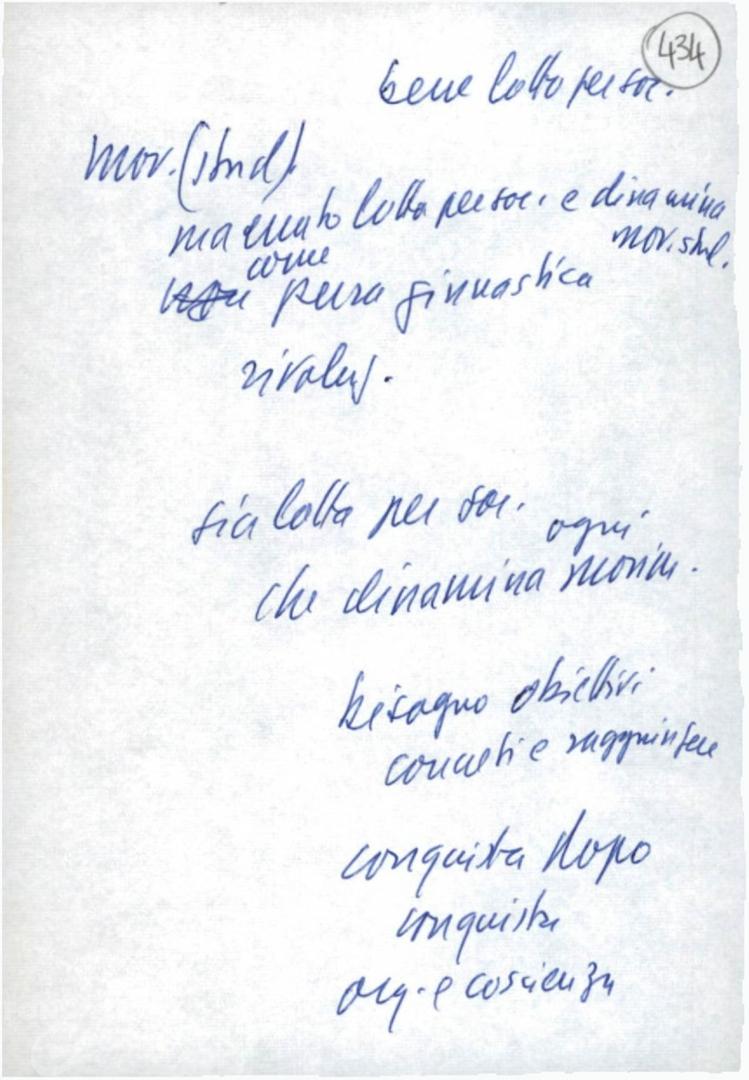 434
bene lotta per soc.
mov. (stud).
ma errato lotta per soc. e dinamina
mov. stud.
come
pura ginnastica
rivoluz.
sia lotta per soc.
ogni
che dinamina movim.
bisogno obiettivi
concreti e raggiungere
conquista dopo
conquista
org. e coscienza